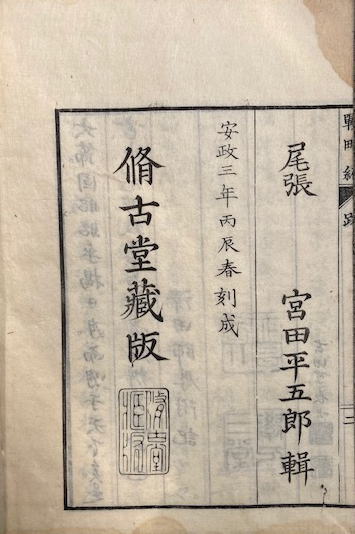 尾張 宮田平五郎輯
安政三年丙辰春刻成
脩古堂藏版